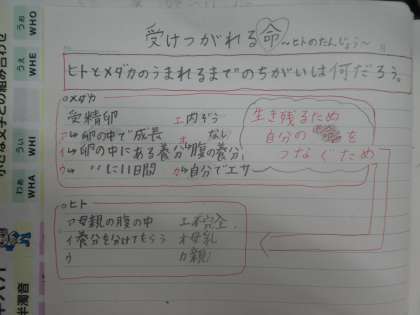 受けつがれる命～ヒトのたんじょう～
ヒトとメダカのうまれるまでのちがいは何だろう。
○メダカ
受精卵 エ 内ぞう
ア→卵の中で成長 オ ない
イ→卵の中にある養分→腹の養分
ウ→ 〃に11日間 カ→自分でエサ
生き残るため
自分の
を
つなぐため
○ヒト
ア 母親の腹の中 エ 不完全
イ 養分を分けてもらう オ 母乳
ウ カ 親
うぉ WHO
うぇ WHE
うぃ WHI
わぁ WHA
小さな文字との組み合わせ
半濁音